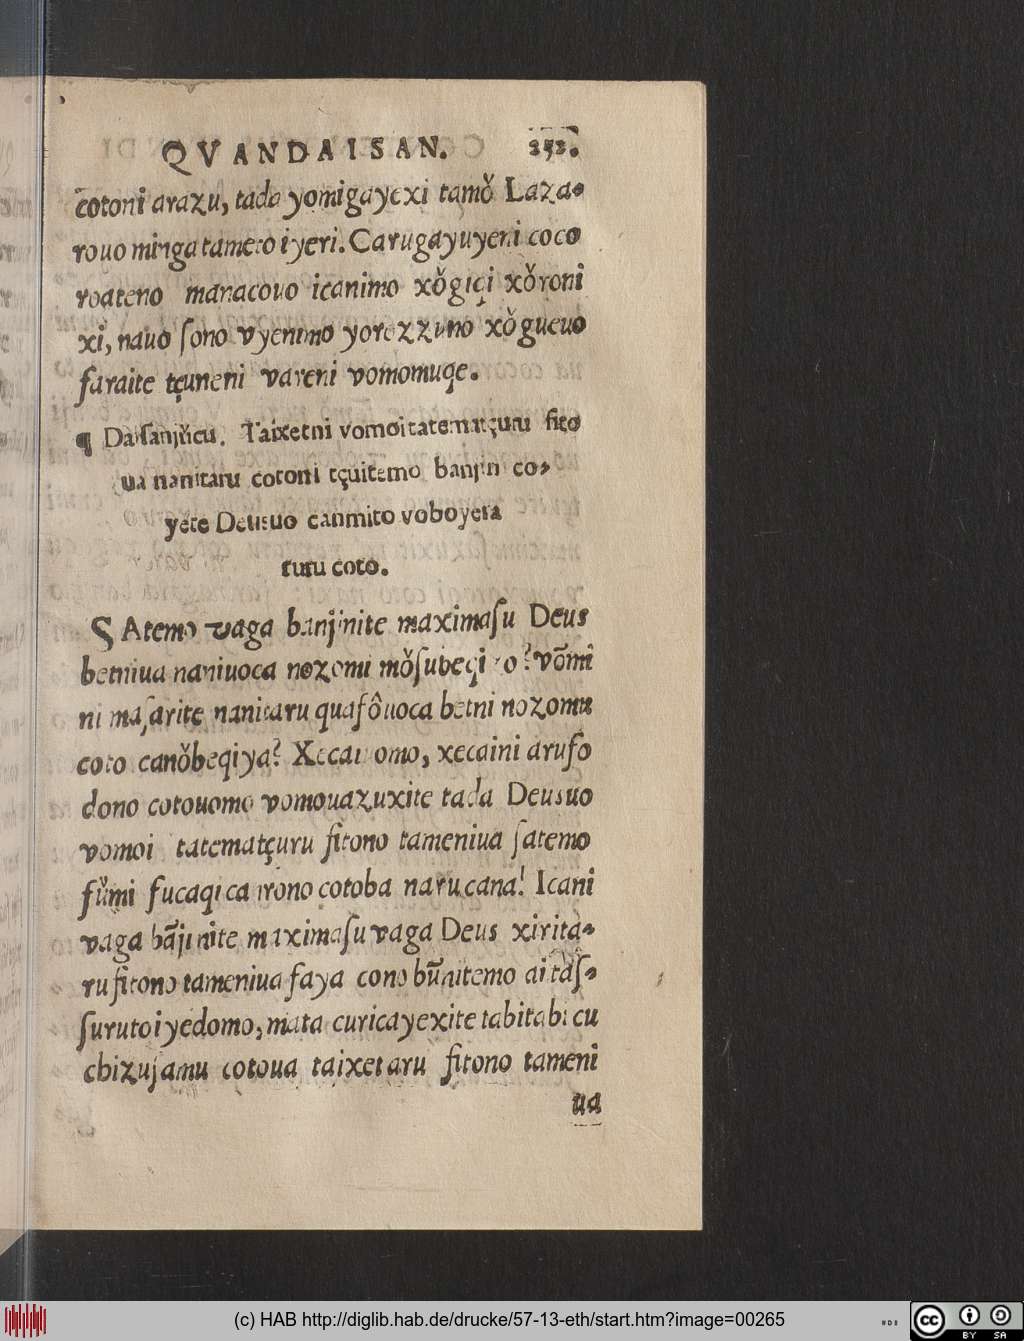 QVANDAISAN. 253.
cotoni arazu, tada yomigayexi tamǒ Laza-
rouo minga tamero iyeri. Carugayuyeni coco
roateno manacouo icanimo xǒgiqi xǒroni
xi, nauo ſono vyenimo yorozzuno xǒgueuo
faraite tçuneni vareni vomomuqe.
¶ Daiſanjŭcu. Taixetni vomoitatematçuru fito
ua nanitaru cotoni tçuitemo banjini co-
yete Deusuo canmito voboyera
ruru coto.
SAtemo vaga banjinite maximaſu Deus
betniua naniuoca nozomi mǒſubeqi zo? vōmi
ni maſarite nanitaru quafôuoca betni nozomu
coto canǒbeqiya? Xecai omo, xecaini arufo
dono cotouomo vomouazuxite tada Deusuo
vomoi tatematçuru fitono tameniua ſatemo
fŭmi fucaqi ca nono cotoba narucana! Icani
vaga bājinite maximaſu vaga Deus xirita-
ru fitono tameniua faya cono būnitemo ai taſ-
ſuru to iyedomo, mata curicayexite tabitabi cu
chizuſamu cotoua taixetaru fitono tameni
ua
(c) HAB http://diglib.hab.de/drucke/57-13-eth/start.htm?image=00265
cc BY SA